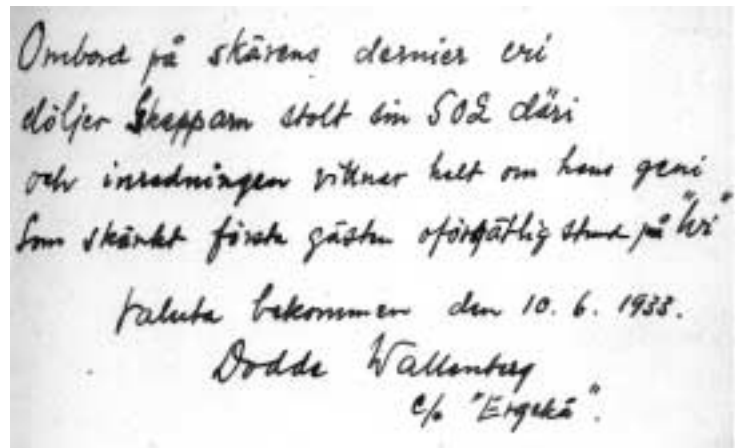 Ombord på skärens dernier cri
döljer Skepparn stolt sin SOS däri
och inredningen vittnar helt om hans geni
Som skänkt första gästen oförgätlig stund på "Wi"
Valuta bekommen den 10. 6. 1933.
Dodde Wallenberg
c/o "Ergekå".